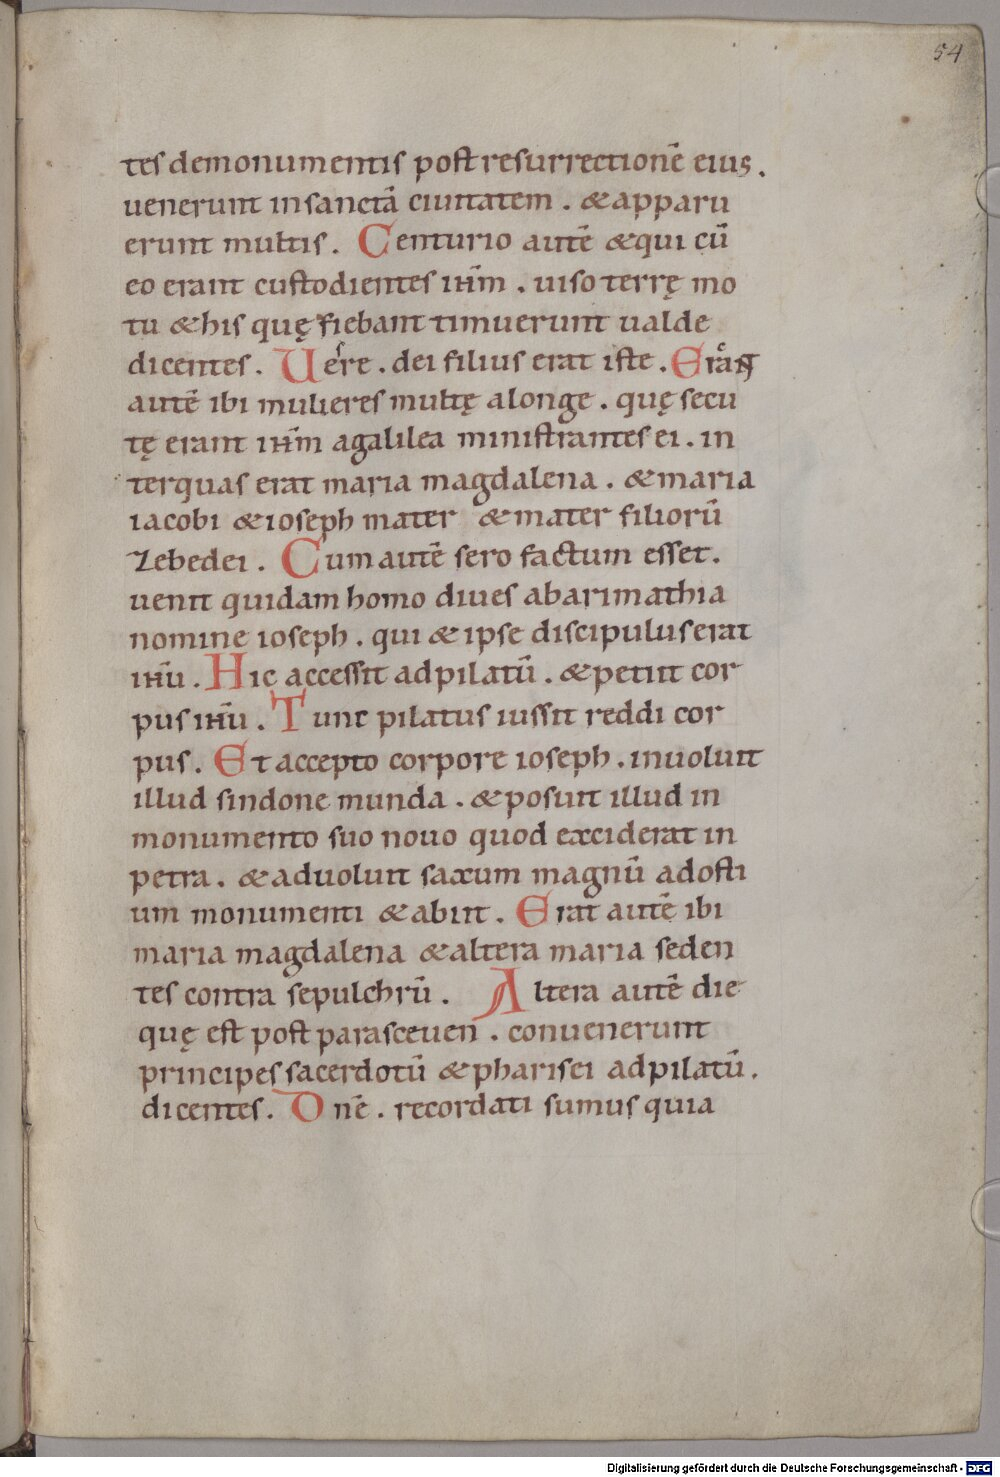 54
tes demonumentis post resurrectionē eius.
uenerunt insanctā ciuitatem. & apparu
erunt multis. Centurio autē & qui cū
eo erant custodientes ihm̄. uiso terrę mo
tu & his quę fiebant timuerunt ualde
dicentes. Uere. dei filius erat iste. Erāt
autē ibi mulieres multę alonge. quę secu
tę erant ihm̄ agalilea ministrantes ei. in
terquas erat maria magdalena. & maria
iacobi & ioseph mater & mater filiorū
Zebedei. Cum autē sero factum esset.
uenit quidam homo diues abarimathia
nomine ioseph. qui & ipse discipulus erat
ihū. Hic accessit adpilatū. & petiit cor
pus ihū. Tunc pilatus iussit reddi cor
pus. Et accepto corpore ioseph. inuoluit
illud sindone munda. & posuit illud in
monumento suo nouo quod exciderat in
petra. & aduoluit saxum magnū adosti
um monumenti & abiit. Erat autē ibi
maria magdalena & altera maria seden
tes contra sepulchrū. Altera autē die
quę est post parasceuen. conuenerunt
principes sacerdotū & pharisei adpilatū.
dicentes. Dnē. recordati sumus quia
Digitalisierung gefördert durch die Deutsche Forschungsgemeinschaft - DFG